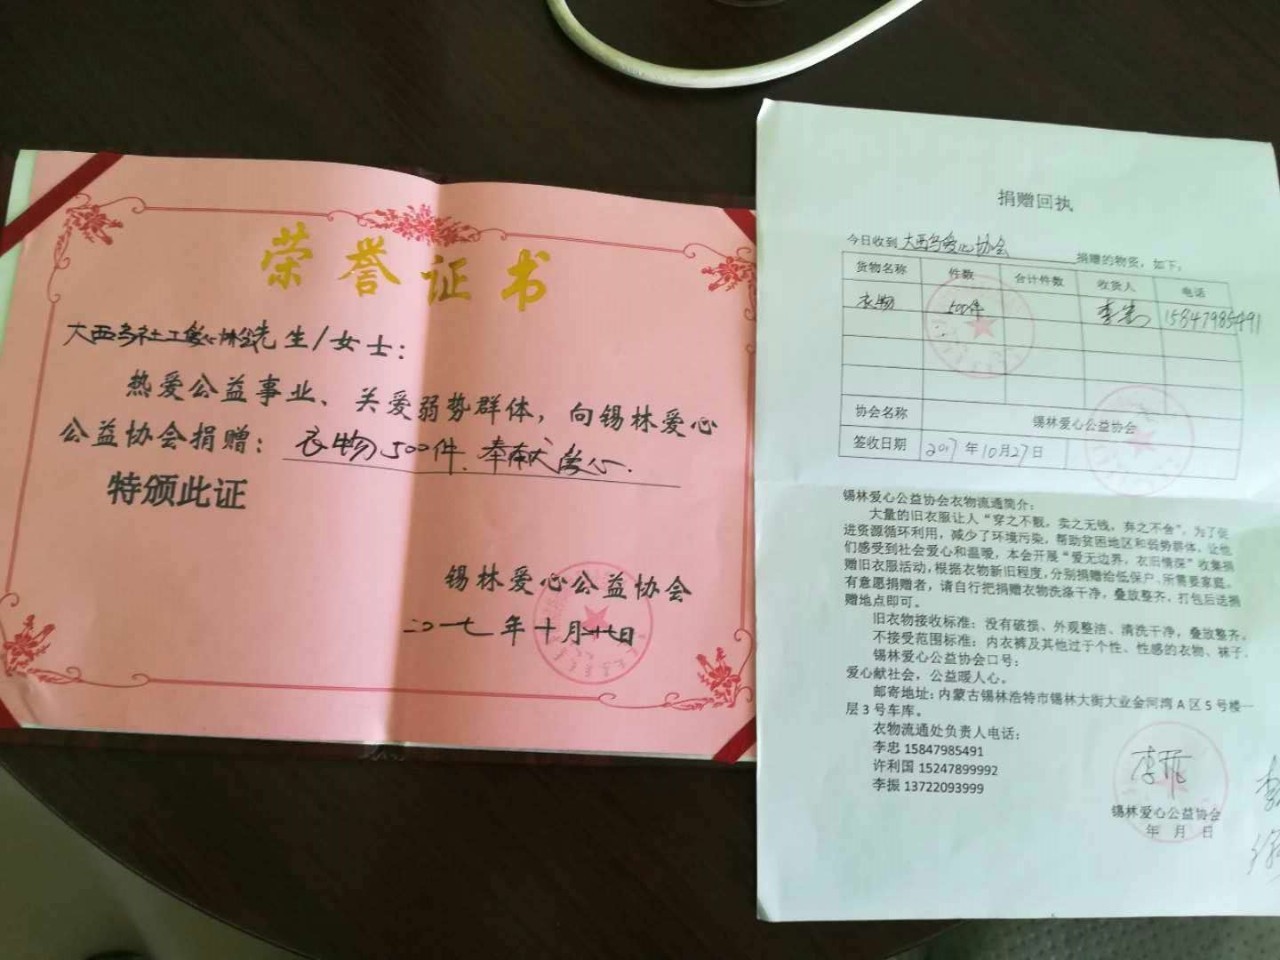 荣誉证书
大西乌社工爱心协会先生/女士：
热爱公益事业、关爱弱势群体，向锡林爱心
公益协会捐赠：衣物500件.奉献爱心.
特颁此证
锡林爱心公益协会
二〇一七年十月廿七日
捐赠回执
今日收到大西乌爱心协会捐赠的物资，如下：
货物名称 件数 合计件数 收货人 电话
衣物 500件 李忠 15847985491
协会名称 锡林爱心公益协会
签收日期 2017年10月27日
锡林爱心公益协会衣物流通简介：
大量的旧衣服让人“穿之不觐，卖之无钱，弃之不舍”，为了促
进资源循环利用，减少了环境污染，帮助贫困地区和弱势群体，让他
们感受到社会爱心和温暖，本会开展“爱无边界，衣旧情深”收集捐
赠旧衣服活动，根据衣物新旧程度，分别捐赠给低保户、所需要家庭。
有意愿捐赠者，请自行把捐赠衣物洗涤干净，叠放整齐，打包后送捐
赠地点即可。
旧衣物接收标准：没有破损、外观整洁、清洗干净，叠放整齐。
不接受范围标准：内衣裤及其他过于个性、性感的衣物、袜子.
锡林爱心公益协会口号：
爱心献社会，公益暖人心。
邮寄地址：内蒙古锡林浩特市锡林大街大业金河湾A区5号楼一
层3号车库。
衣物流通处负责人电话：
李忠 15847985491
许利国 15247899992
李振 13722093999
锡林爱心公益协会
年 月 日